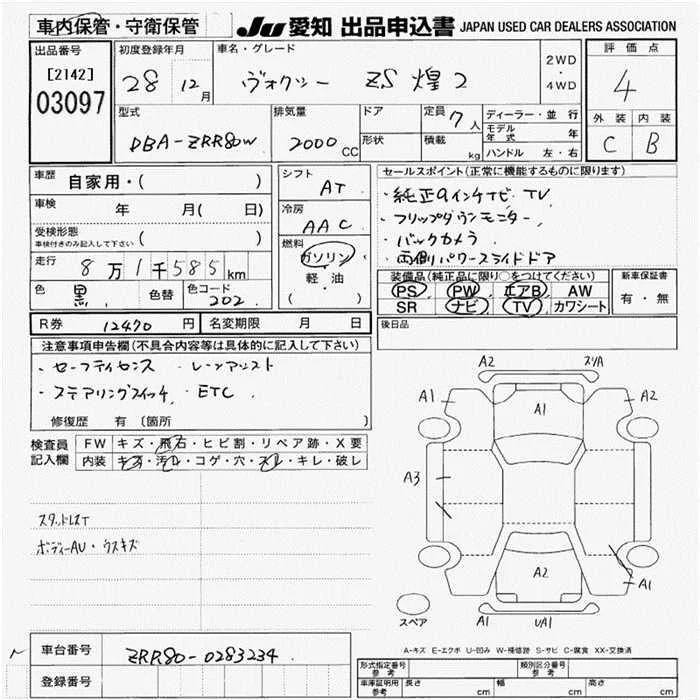 車内保管・守衛保管 JU 愛知 出品申込書 JAPAN USED CAR DEALERS ASSOCIATION
出品番号 初度登録年月 車名・グレード 評価点
[2142] 28 12月 ヴォクシー ZS 煌2 2WD・4WD 4
03097
型式 排気量 ドア 定員 7人 ディーラー・並行 外装 内装
DBA-ZRR80W 2000 CC 形状 積載 kg モデル年式 年 C B
ハンドル 左・右
車歴 自家用・( ) シフト AT セールスポイント(正常に機能するものに限ります)
車検 年 月( 日) 冷房 AAC ・純正9インチナビ・TV
受検形態 車検付きのみ記入して下さい ( ) ・フリップダウンモニター
燃料 ガソリン ・バックカメラ
走行 8万1千585km 軽油 ・両側パワースライドドア
色 黒 色替 色コード 202 ( ) 装備品(純正品に限り○をつけてください) 新車保証書
PS PW エアB AW 有・無
SR ナビ TV カワシート
R券 12470円 名変期限 月 日 後日品
注意事項申告欄(不具合内容等は具体的に記入して下さい)
・セーフティセンス ・レーンアシスト
・ステアリングスイッチ ・ETC
修復歴 有 〔箇所 〕
検査員記入欄 FW キズ・飛石・ヒビ割・リペア跡・X要
内装 キズ・汚れ・コゲ・穴・スレ・キレ・破レ
A2 スリA
A1 A1 A2
A3
スタッドレスT
ボディーAU・ウスキズ
A2 A1
スペア A1 UA1
A-キズ E-エクボ U-凹み W-補修跡 S-サビ C-腐食 XX-交換済
車台番号 ZRR80-0283234
登録番号
形式指定番号 参考 類別区分番号 参考
車庫証明用 参考 長さ cm 幅 cm 高さ cm